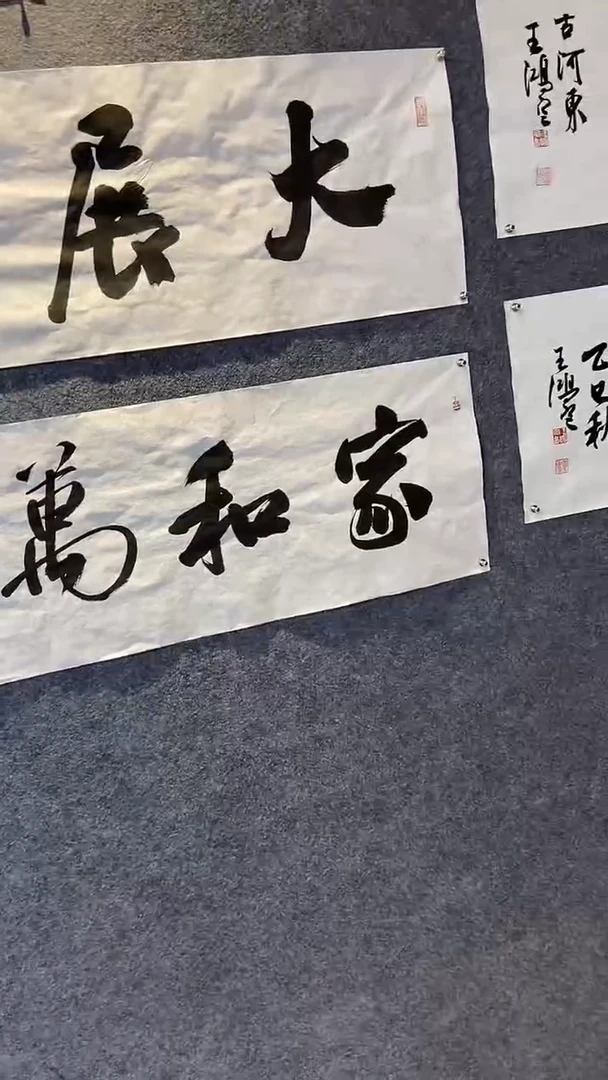 大展
家和萬
古河東
王鴻
乙巳秋
王鴻